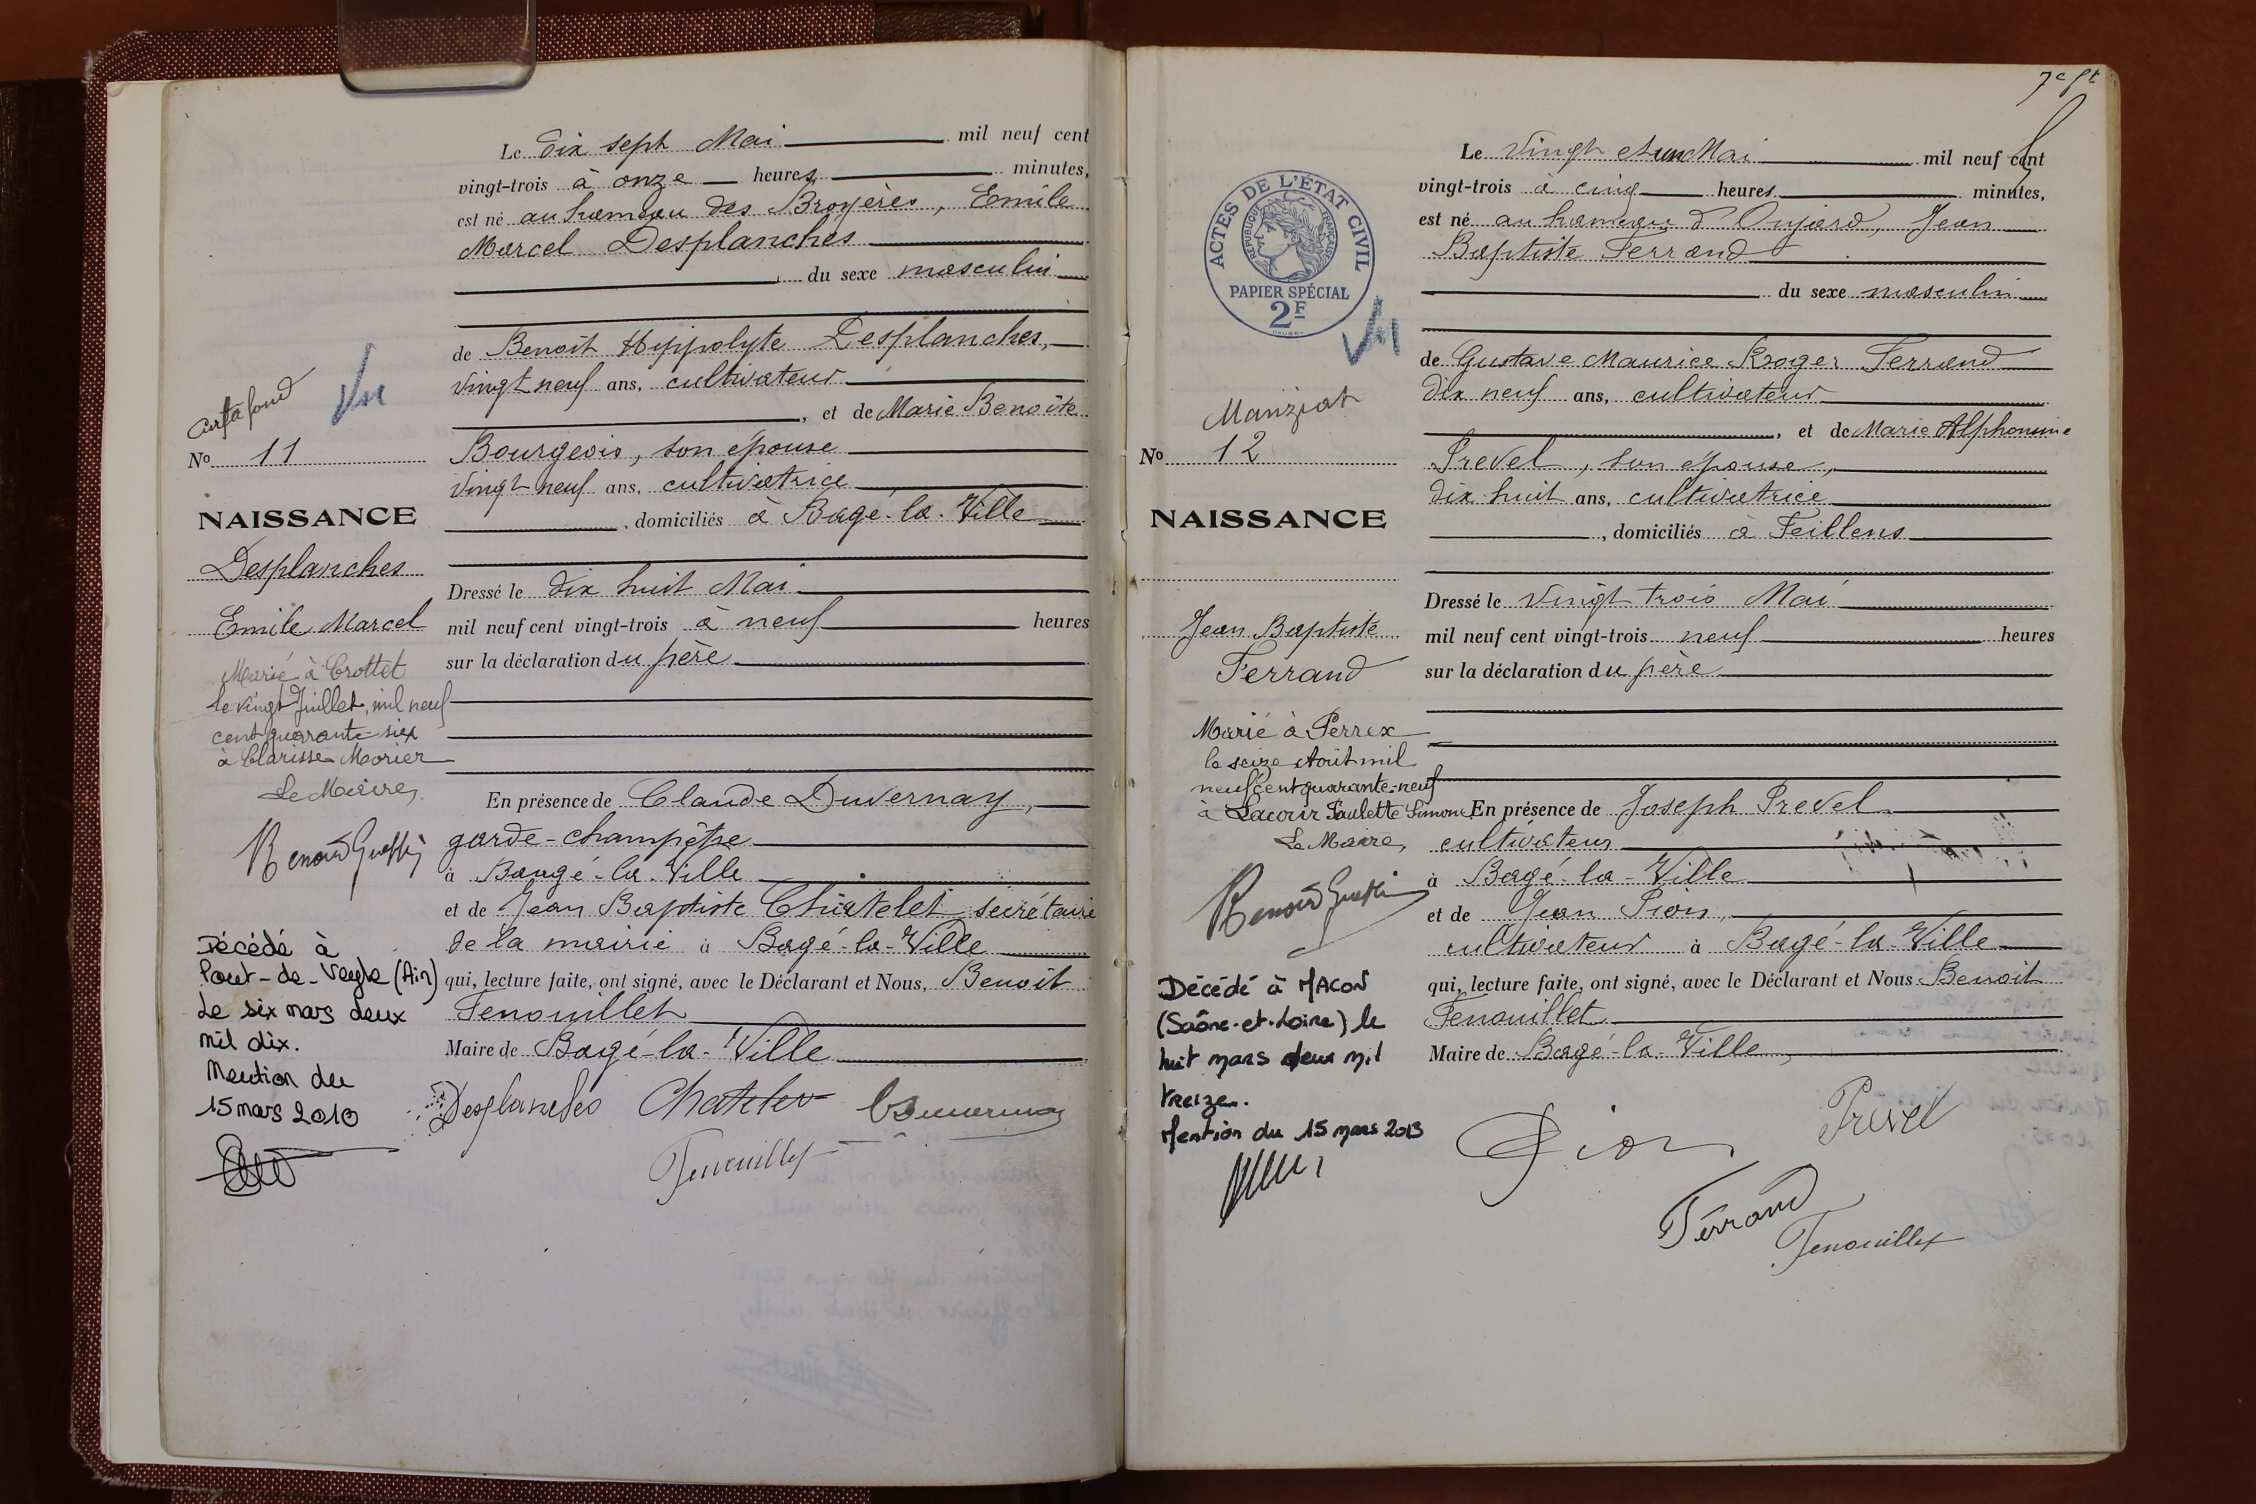 Le dix sept Mai mil neuf cent
vingt-trois à onze heures minutes,
est né au hameau des Broyères, Emile
Marcel Desplanches
du sexe masculin
de Benoît Hippolyte Desplanches,
vingt neuf ans, cultivateur
, et de Marie Benoîte
Bourgeois, son épouse
vingt neuf ans, cultivatrice
, domiciliés à Bagé-la-Ville
Dressé le dix huit Mai
mil neuf cent vingt-trois à neuf heures
sur la déclaration du père
En présence de Claude Duvernay,
garde-champêtre
à Baugé-la-Ville
et de Jean Baptiste Châtelet, secrétaire
de la mairie à Bagé-la-Ville
qui, lecture faite, ont signé, avec le Déclarant et Nous, Benoît
Fenouillet
Maire de Bagé-la-Ville
Desplanches Chatelet
Fenouillet
No 11
NAISSANCE
Desplanches
Emile Marcel
Marié à Crottet
le vingt Juillet, mil neuf
cent quarante-six
à Clarisse Morier
Le Maire,
Décédé à
Pont-de-Veyle (Ain)
Le six mars deux
mil dix.
Mention du
15 mars 2010
7e ft
Le vingt et un Mai mil neuf cent
vingt-trois à cinq heures minutes,
est né au hameau d'Onjard, Jean
Baptiste Ferrand
du sexe masculin
de Gustave Maurice Roger Ferrand
dix neuf ans, cultivateur
, et de Marie Alphonsine
Prevel, son épouse,
dix huit ans, cultivatrice
, domiciliés à Feillens
Dressé le vingt trois Mai
mil neuf cent vingt-trois neuf heures
sur la déclaration du père
En présence de Joseph Prevel
cultivateur
à Bagé-la-Ville
et de Jean Pion,
cultivateur à Bagé-la-Ville
qui, lecture faite, ont signé, avec le Déclarant et Nous Benoit
Fenouillet
Maire de Bagé-la-Ville,
Pion Prevel
Ferrand
Fenouillet
ACTES DE L'ÉTAT CIVIL
RÉPUBLIQUE FRANÇAISE
PAPIER SPÉCIAL
2F
Manziat
No 12
NAISSANCE
Jean Baptiste
Ferrand
Marié à Perrex
le seize Août mil
neuf cent quarante-neuf
à Lacour Paulette Simone
Le Maire,
Décédé à MACON
(Saône-et-Loire) le
huit mars deux mil
treize.
Mention du 15 mars 2013